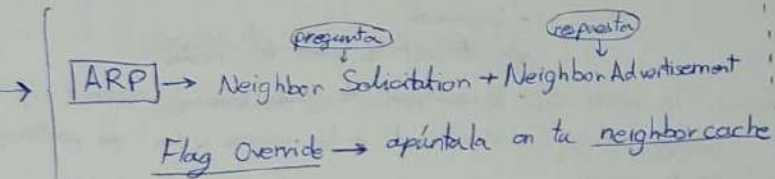 pregunta respuesta
→ ARP → Neighbor Solicitation + Neighbor Advertisement
Flag Override → apúntala en tu neighbor cache